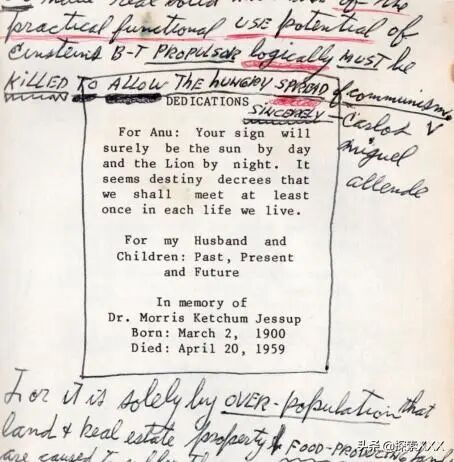 practical functional USE potential of
einsteins B-T PROPULSOR logically MUST be
KILLED TO ALLOW THE hUNGRY SPREAD of communism
DEDICATIONS
SINCERELY - Carlos
miguel
allende
For Anu: Your sign will
surely be the sun by day
and the Lion by night. It
seems destiny decrees that
we shall meet at least
once in each life we live.
For my Husband and
Children: Past, Present
and Future
In memory of
Dr. Morris Ketchum Jessup
Born: March 2, 1900
Died: April 20, 1959
For it is solely by OVER-population that
land & real estate property & FOOD-PRODUCING
are caused to
头条 @探索XXX